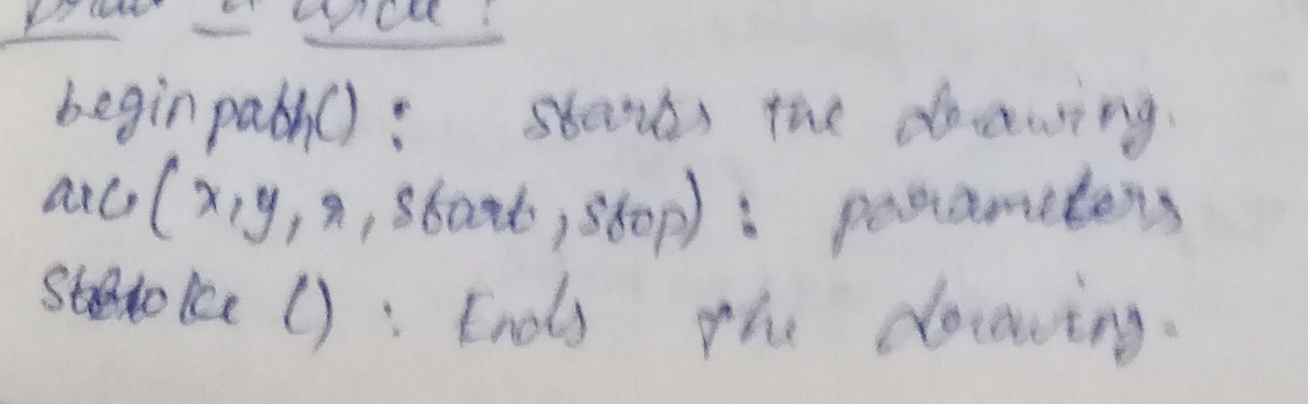 Draw a circle :
beginpath() : starts the drawing.
arc(x,y,r,start,stop) : parameters
stroke () : Ends the drawing.